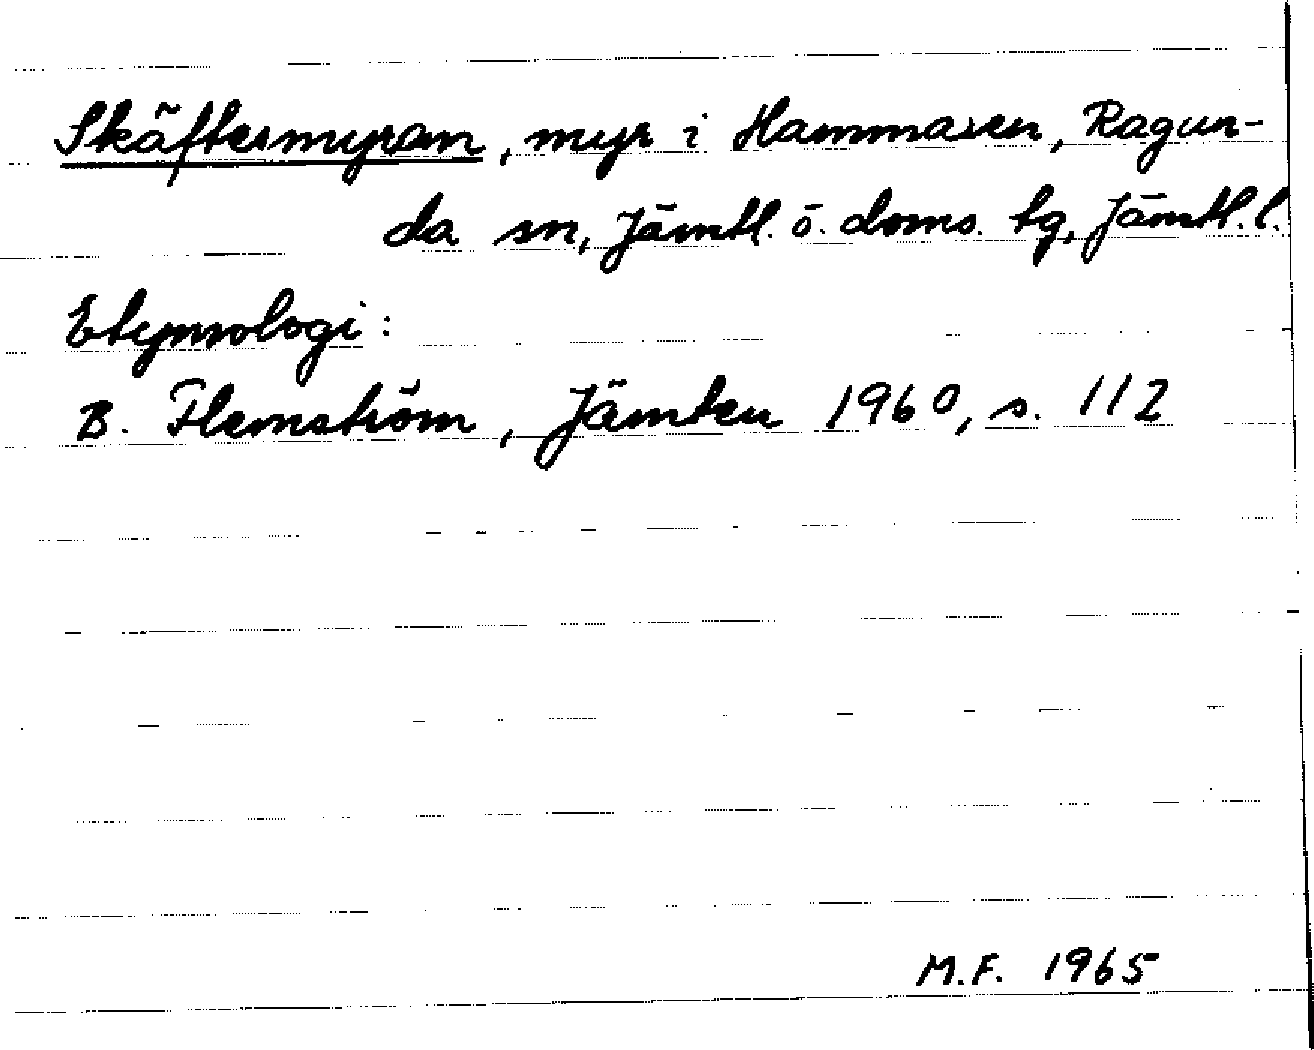 Skäftesmyran, myr i Hammaren, Ragun-
da sn, Jämtl. ö. doms. tg, Jämtl. l.
Etymologi:
B. Flemström, Jämten 1960, s. 112
M.F. 1965